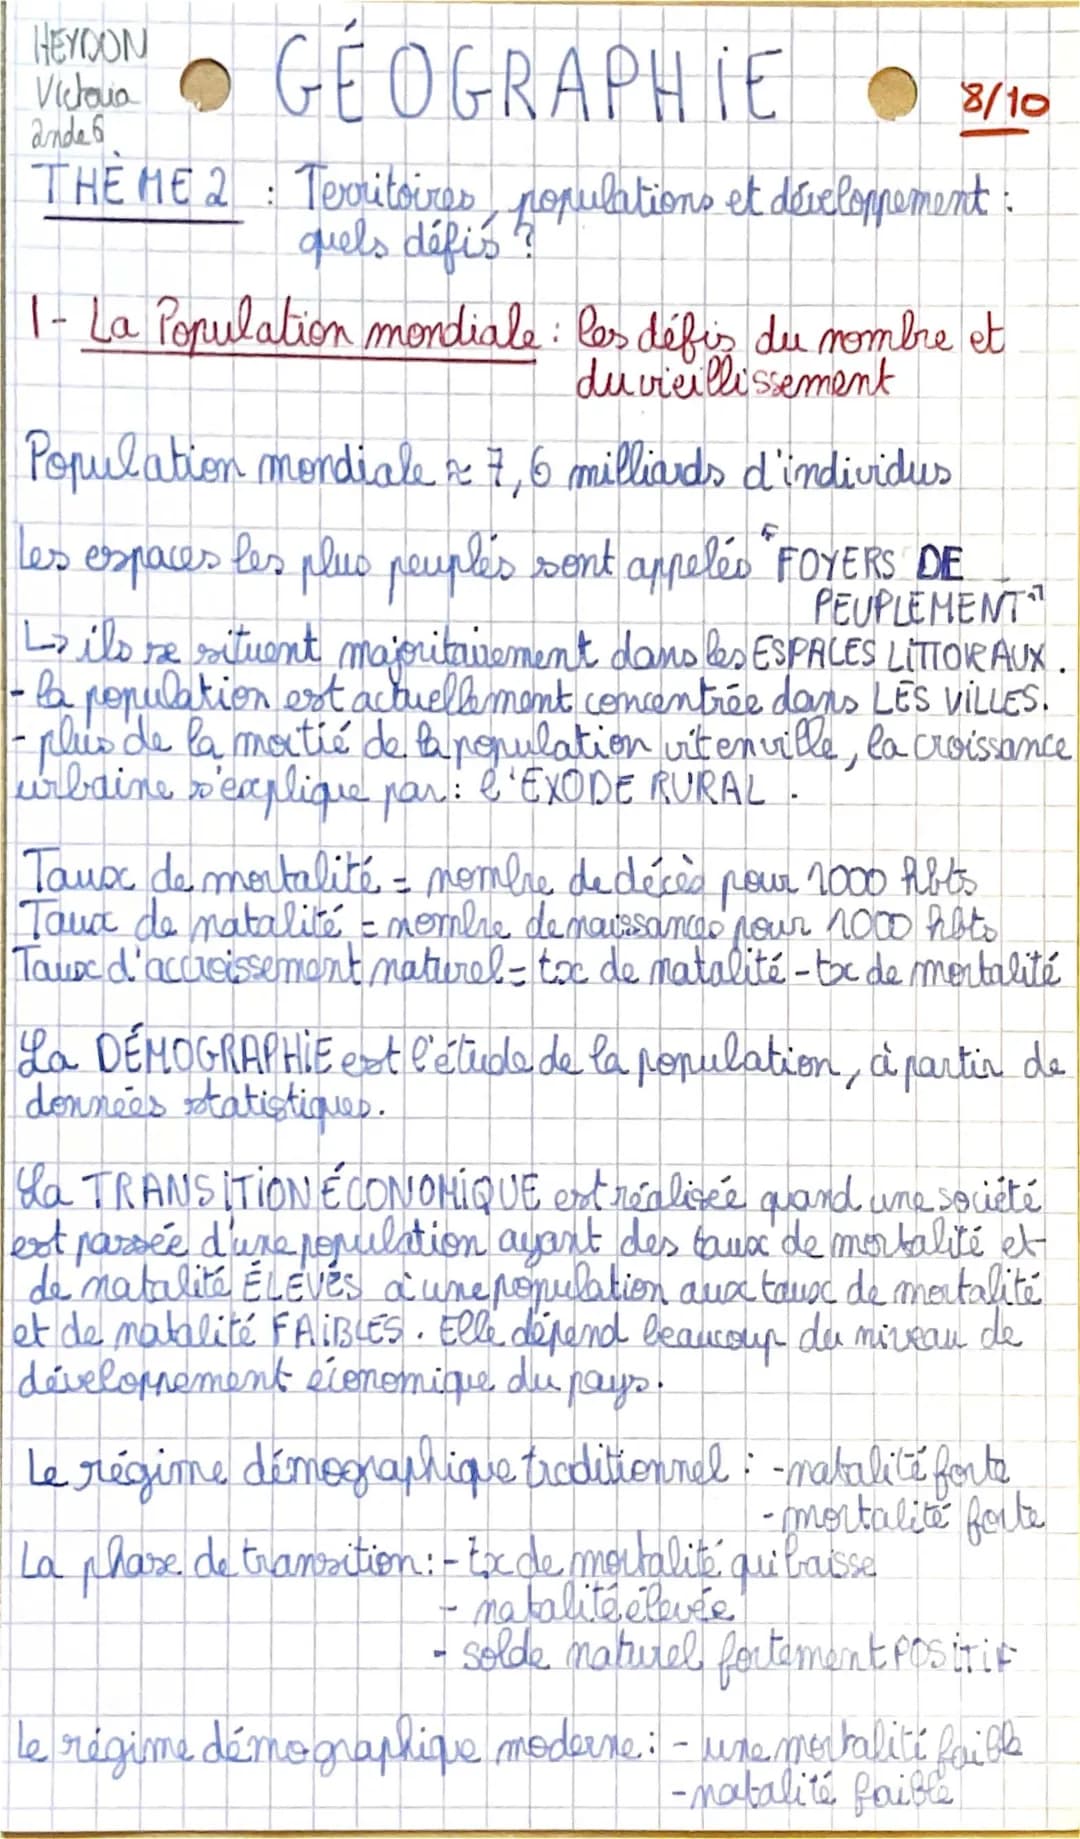 HEYDON
Victoria
2nde 6
GÉOGRAPHiE
8/10
THÈME 2 : Territoires, populations et développement :
quels défis ?
1 - La Population mondiale : les défis du nombre et
du vieillissement
Population mondiale ≈ 7,6 milliards d'individus
Les espaces les plus peuplés sont appelés "FOYERS DE
PEUPLEMENT"
↳ ils se situent majoritairement dans les ESPACES LiTTORAUX.
- la population est actuellement concentrée dans LES ViLLES.
- plus de la moitié de la population vit en ville, la croissance
urbaine s'explique par : l'EXODE RURAL.
Taux de mortalité = nombre de décès pour 1000 hbts
Taux de natalité = nombre de naissances pour 1000 hbts
Taux d'accroissement naturel = tx de natalité - tx de mortalité
La DÉMOGRAPHiE est l'étude de la population, à partir de
données statistiques.
La TRANSiTiON ÉCONOMiQUE est réalisée quand une société
est passée d'une population ayant des taux de mortalité et
de natalité ÉLEVÉS à une population aux taux de mortalité
et de natalité FAiBLES. Elle dépend beaucoup du niveau de
développement économique du pays.
Le régime démographique traditionnel : - natalité forte
- mortalité forte
La phase de transition : - tx de mortalité qui baisse
- natalité élevée
- solde naturel fortement POSiTiF
Le régime démographique moderne : - une mortalité faible
- natalité faible